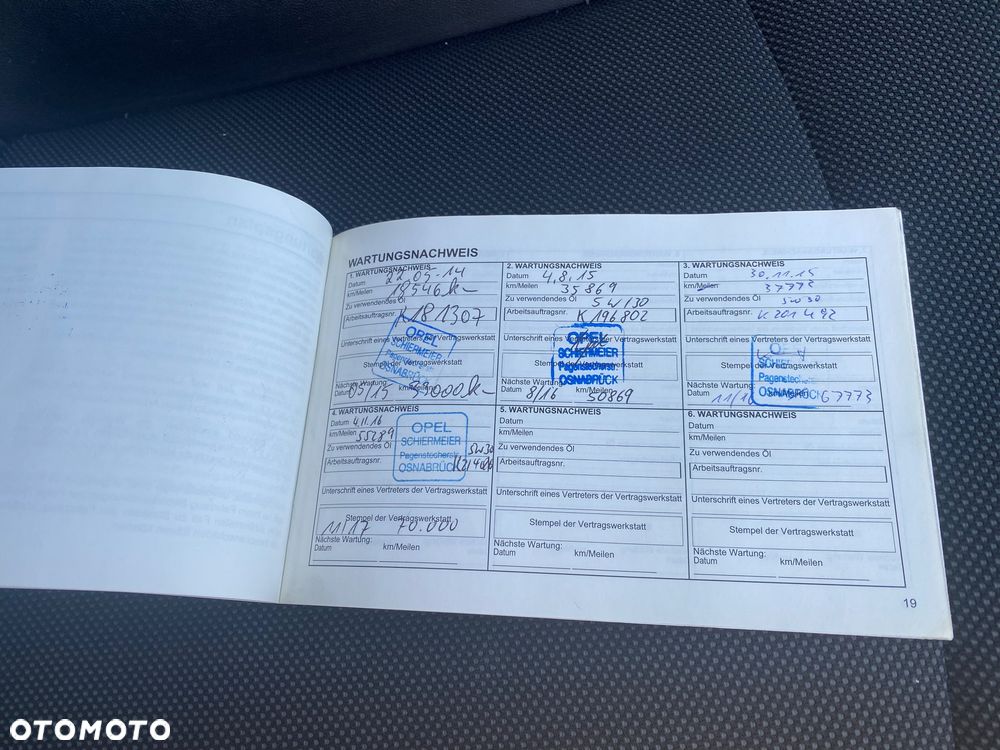 WARTUNGSNACHWEIS
1. WARTUNGSNACHWEIS
Datum 22.05.14
km/Meilen 18546 k
Zu verwendendes Öl
Arbeitsauftragsnr. K181307
Unterschrift eines Vertreters der Vertragswerkstatt
OPEL
SCHIERMEIER
Pagenstecherstr.
OSNABRÜCK
Stempel der Vertragswerkstatt
Nächste Wartung:
Datum 05/15 km/Meilen
2. WARTUNGSNACHWEIS
Datum 4.8.15
km/Meilen 35869
Zu verwendendes Öl 5W30
Arbeitsauftragsnr. K196802
Unterschrift eines Vertreters der Vertragswerkstatt
OPEL
SCHIERMEIER
Pagenstecherstr.
OSNABRÜCK
Stempel der Vertragswerkstatt
Nächste Wartung:
Datum 8/16 km/Meilen 50869
3. WARTUNGSNACHWEIS
Datum 30.11.15
km/Meilen 37773
Zu verwendendes Öl 5W30
Arbeitsauftragsnr. K201492
Unterschrift eines Vertreters der Vertragswerkstatt
Stempel der Vertragswerkstatt
OSNABRÜCK
Nächste Wartung:
Datum 11/16 km/Meilen 67773
4. WARTUNGSNACHWEIS
Datum 4.11.16
km/Meilen 55289
Zu verwendendes Öl 5W30
Arbeitsauftragsnr.
OPEL
SCHIERMEIER
Pagenstecherstr.
OSNABRÜCK
Unterschrift eines Vertreters der Vertragswerkstatt
Stempel der Vertragswerkstatt
11/17 70.000
Nächste Wartung:
Datum km/Meilen
5. WARTUNGSNACHWEIS
Datum
km/Meilen
Zu verwendendes Öl
Arbeitsauftragsnr.
Unterschrift eines Vertreters der Vertragswerkstatt
Stempel der Vertragswerkstatt
Nächste Wartung:
Datum km/Meilen
6. WARTUNGSNACHWEIS
Datum
km/Meilen
Zu verwendendes Öl
Arbeitsauftragsnr.
Unterschrift eines Vertreters der Vertragswerkstatt
Stempel der Vertragswerkstatt
Nächste Wartung:
Datum km/Meilen
19
OTOMOTO